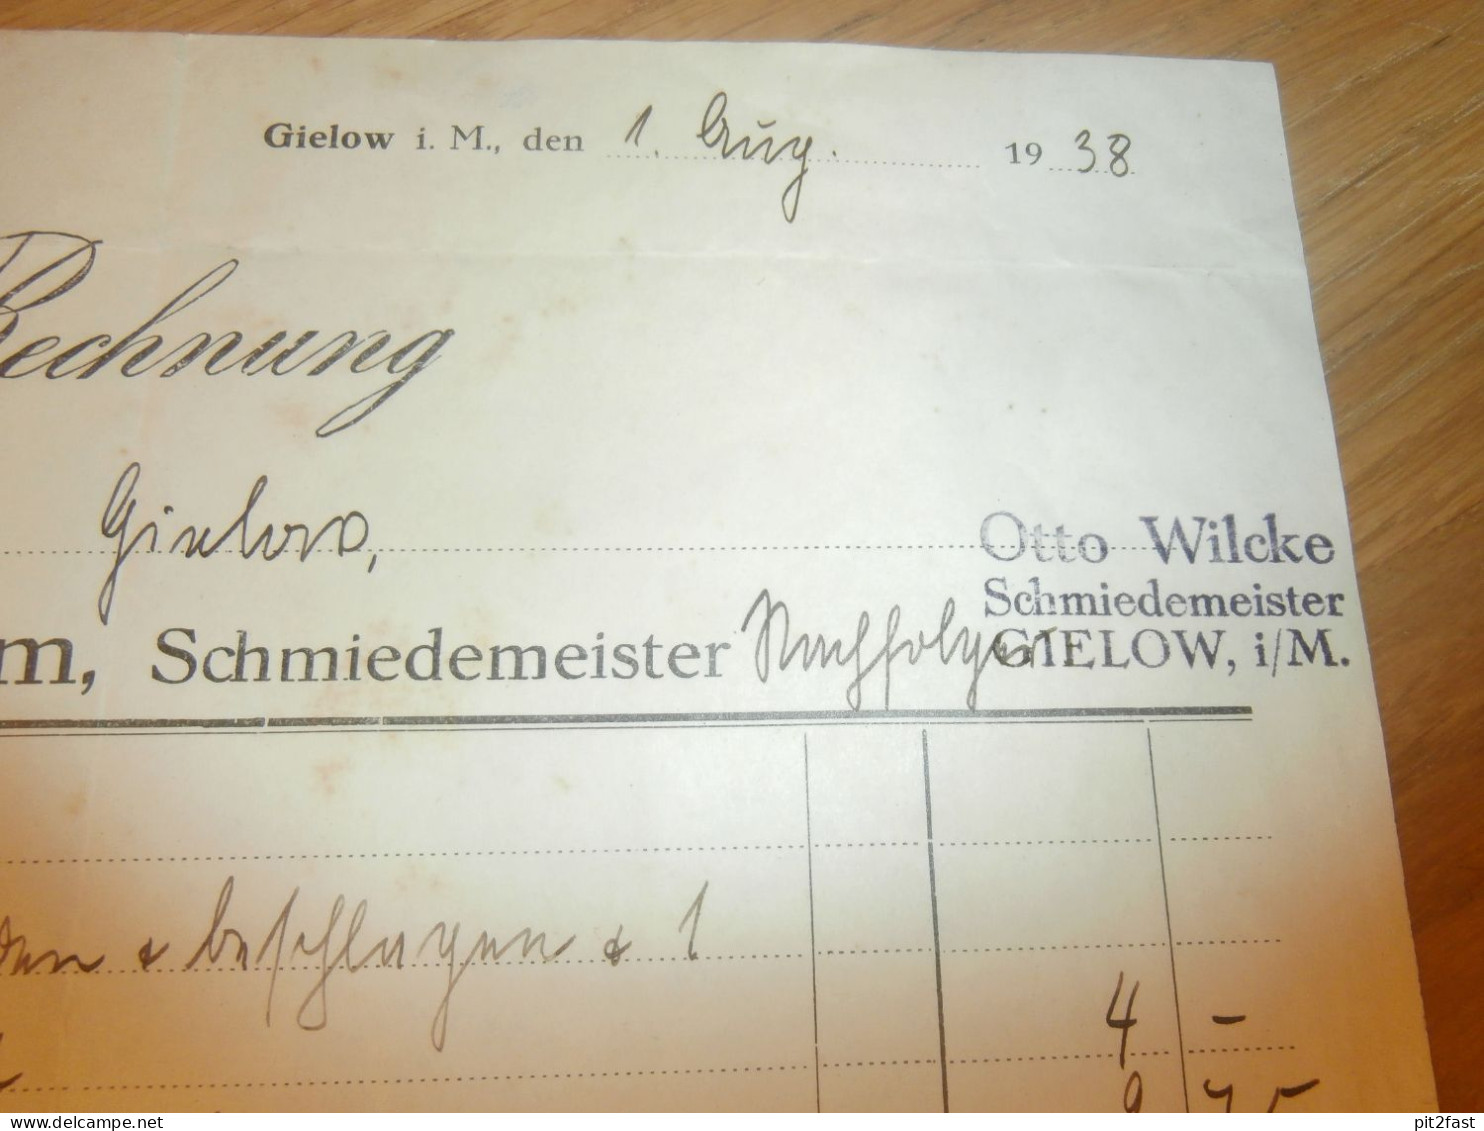 Gielow i. M., den 1. Aug. 1938
Rechnung
Gielow,
Otto Wilcke
Schmiedemeister
GIELOW, i/M.
m, Schmiedemeister Nachfolger
den & beschlagen & 1
4 –
delcampe.net
pit2fast